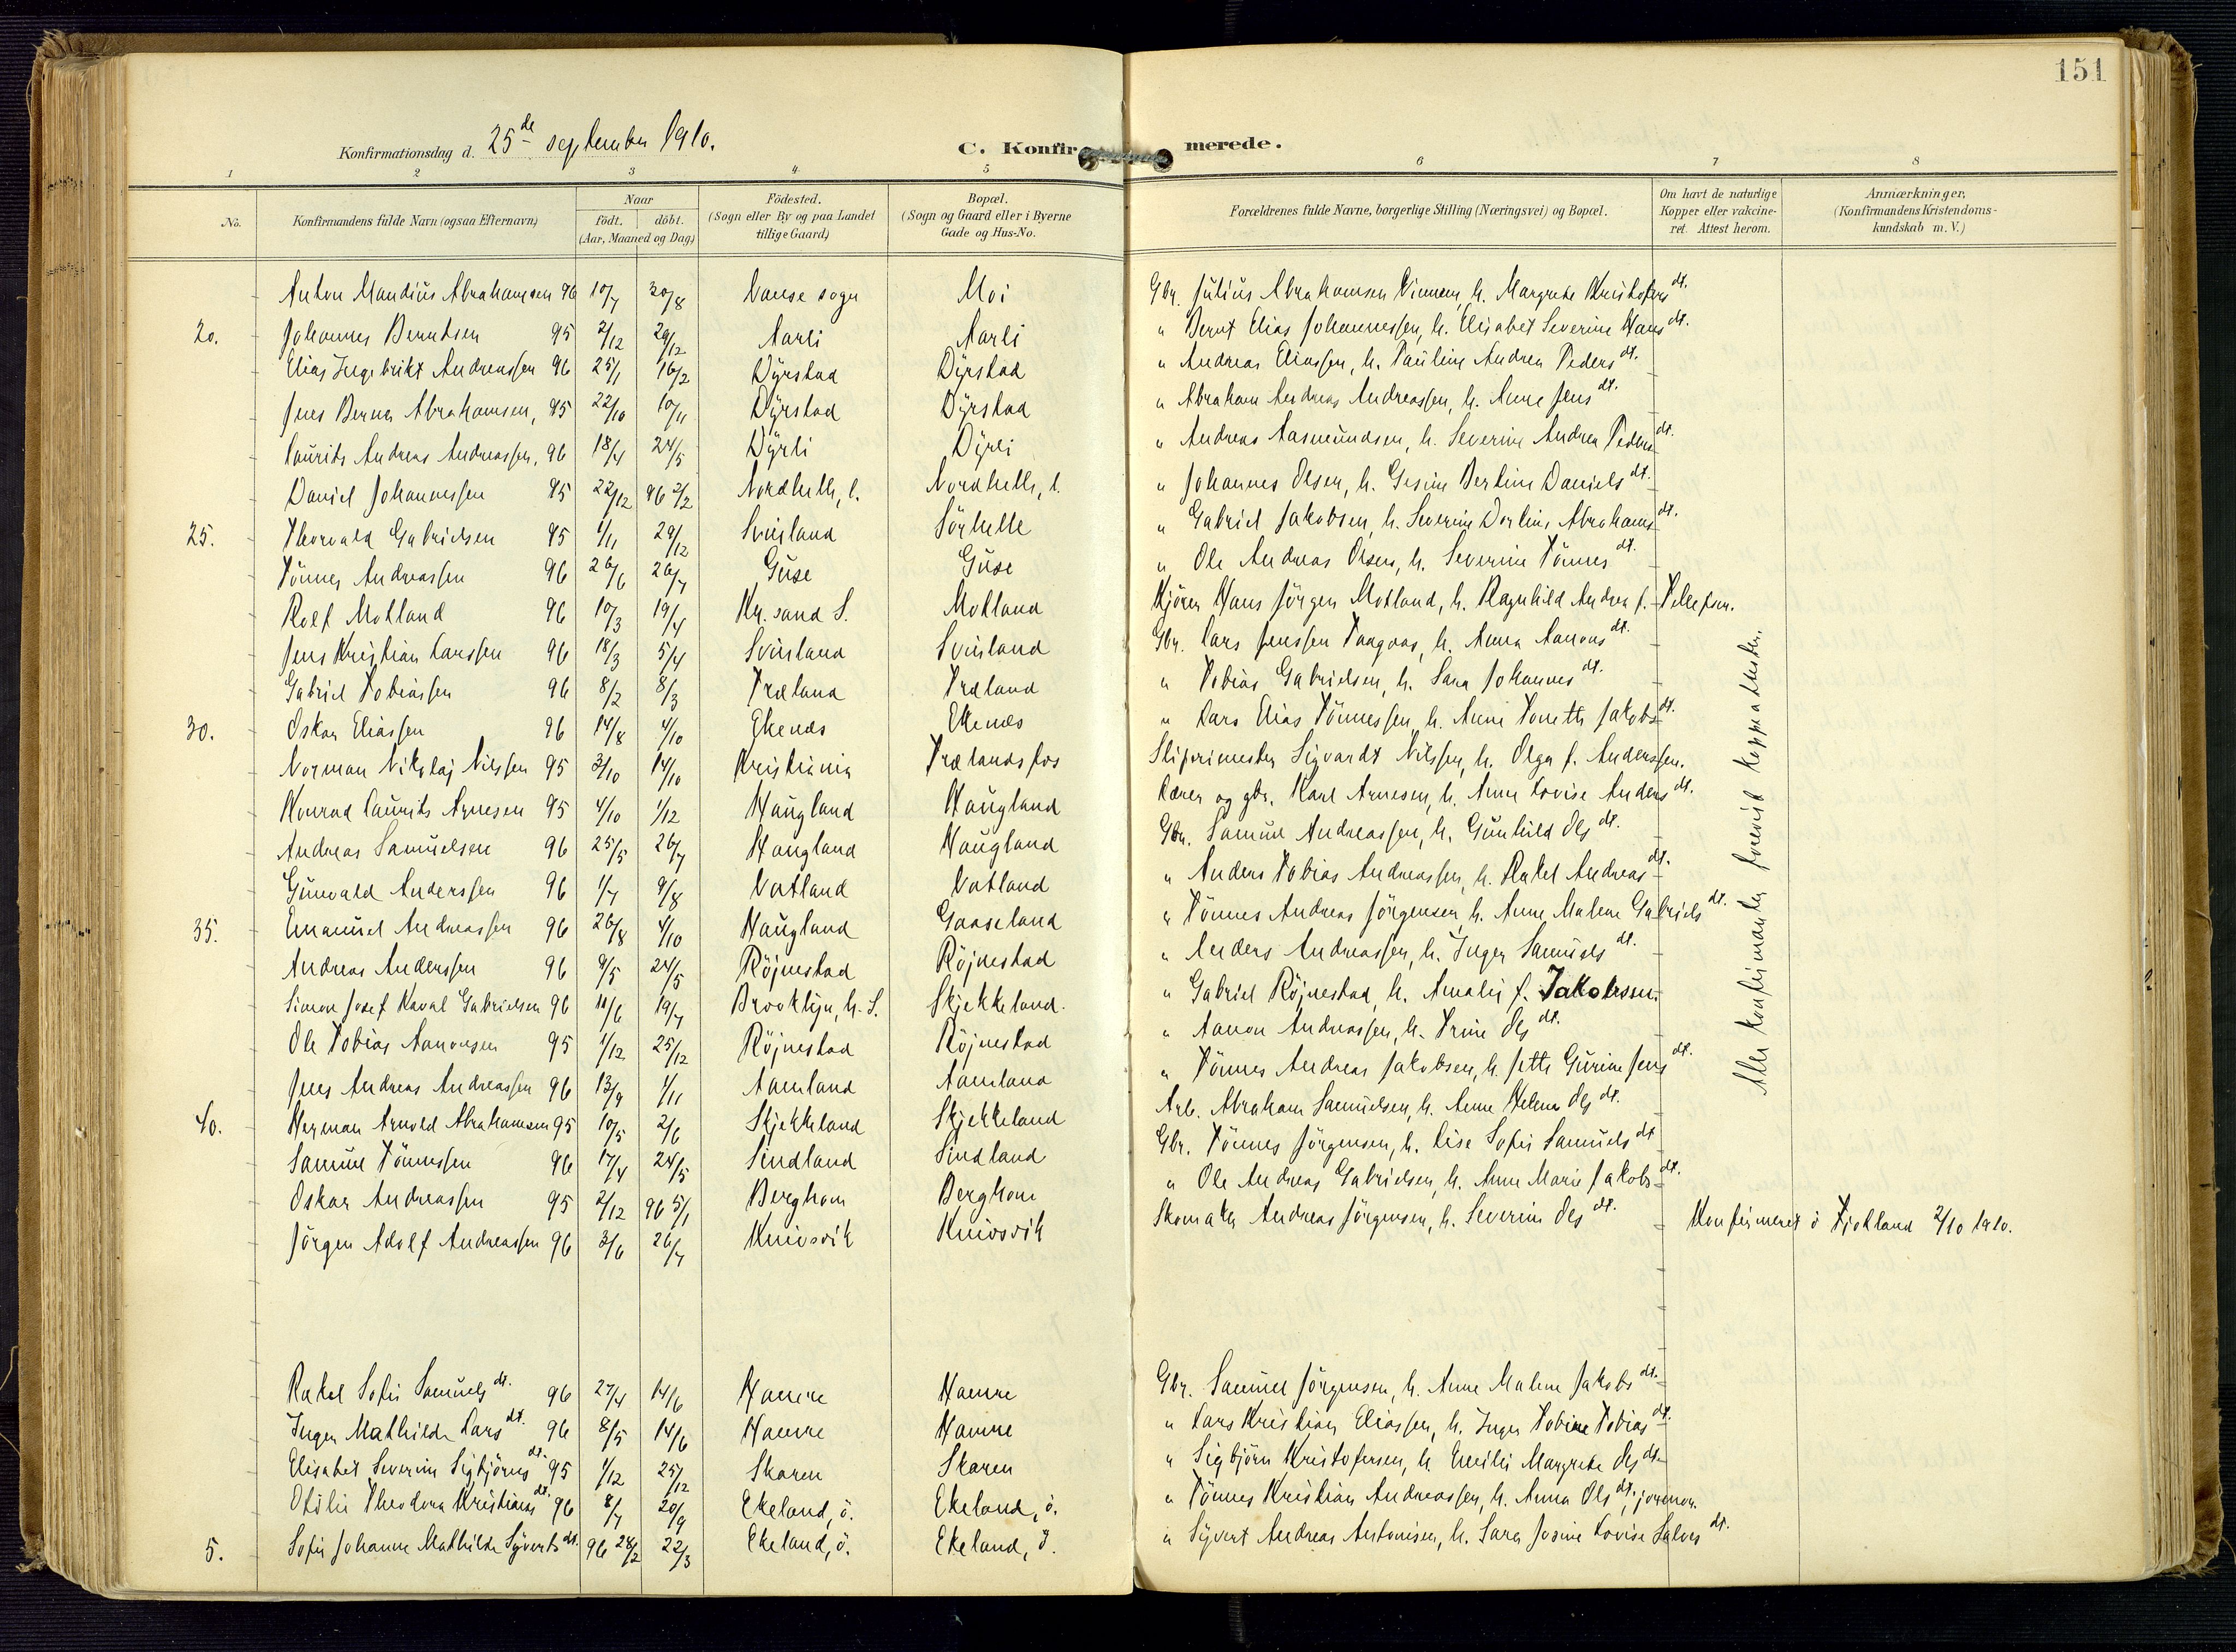 151
Konfirmationsdag d. 25de september 1910.
C. Konfirmerede.
1 2 3 4 5 6 7 8
No. Konfirmandens fulde Navn (ogsaa Efternavn) Naar födt. döbt. (Aar, Maaned og Dag) Födested. (Sogn eller By og paa Landet tillige Gaard) Bopæl. (Sogn og Gaard eller i Byerne Gade og Hus-No. Forældrenes fulde Navne, borgerlige Stilling (Næringsvei) og Bopæl. Om havt de naturlige Kopper eller vakcineret. Attest herom. Anmærkninger, (Konfirmandens Kristendomskundskab m. V.)
Anton Mandius Abrahamsen 96 10/7 30/8 Vanse sogn Moi Gbr. Julius Abrahamsen Vinnem, h. Margrete Kristofersdt.
20. Johannes Berntsen 95 2/12 29/12 Aarli Aarli " Bernt Elias Johannessen, h. Elisabet Severine Hansdt.
Elias Ingebrikt Andreassen 96 25/1 16/2 Dyrstad Dyrstad " Andreas Eliassen, h. Pauline Andrea Pedersdt.
Jens Berner Abrahamsen, 95 22/10 10/11 Dyrstad Dyrstad " Abraham Andreas Andreassen, h. Anne Jensdt.
Laurits Andreas Andreassen, 96 18/4 24/5 Dyrli Dyrli " Andreas Aasmundsen, h. Severine Andrea Pedersdt.
Daniel Johannessen 95 22/12 96 2/2 Nordhelle, l. Nordhelle, l. " Johannes Olsen, h. Gesine Bertine Danielsdt.
25. Thorvald Gabrielsen 95 1/11 29/12 Svinland Sörhelle " Gabriel Jakobsen, h. Severine Dorline Abrahamsdt.
Tönnes Andreassen 96 26/6 26/7 Guse Guse " Ole Andreas Olsen, h. Severine Tönnesdt.
Rolf Motland 96 10/3 19/4 Kr.sand S. Motland Kjörer Hans Jörgen Motland, h. Ragnhild Andrea f. Tellefsen.
Jens Kristian Larssen 96 18/3 5/4 Svinland Svinland Gbr. Lars Jenssen Haagaas, h. Anna Aanonsdt.
Gabriel Tobiassen 96 8/2 8/3 Træland Træland " Tobias Gabrielsen, h. Sara Johannesdt.
30. Oskar Eliassen 96 14/8 4/10 Ekenæs Ekenæs " Lars Elias Tönnessen, h. Anne Tonette Jakobsdt.
Norman Nikolaj Nilssen 95 3/10 14/10 Kristiania Trælandsfos Sliperimester Sigvardt Nilssen, h. Olga f. Anderssen.
Konrad Laurits Arnesen 95 4/10 1/12 Haugland Haugland Lærer og gbr. Karl Arnesen, h. Anne Lovise Andersdt.
Andreas Samuelsen 96 25/5 26/7 Haugland Haugland Gbr. Samuel Andreassen, h. Gunhild Olsdt.
Gunvald Anderssen 96 1/7 9/8 Vatland Vatland " Anders Tobias Andreassen, h. Rakel Andreasdt.
35. Emanuel Andreassen 96 26/8 4/10 Haugland Gaaseland " Tönnes Andreas Jörgensen, h. Anne Malene Gabrielsdt.
Andreas Anderssen 96 9/5 24/5 Röjnestad Röjnestad " Anders Andreassen, h. Inger Samuelsdt.
Simon Josef Gabrielsen 96 11/6 19/7 Brooklyn, Skjekkeland. " Gabriel Röjnestad, h. Amalie f. Jakobssen.
Ole Tobias Aanonsen 95 1/12 25/12 Röjnestad Röjnestad " Aanon Andreassen, h. Trine Olsdt.
Jens Andreas Andreassen 96 13/9 1/11 Aamland Aamland " Tönnes Andreas Jakobsen, h. Jette Gurine Jensdt.
40. Herman Arnold Abrahamsen 95 10/5 2/6 Skjekkeland Skjekkeland Arb. Abraham Samuelsen, h. Anne Helene Olsdt.
Samuel Tönnessen 96 17/4 24/5 Sindland Sindland Gbr. Tönnes Jörgensen, h. Lise Sofie Samuelsdt.
Oskar Andreassen 95 2/12 96 5/1 Berghom Berghom " Ole Andreas Gabrielsen, h. Anne Marie Jakobsdt.
Jörgen Adolf Andreassen 96 3/6 26/7 Knivsvik Knivsvik Skomaker Andreas Jörgensen, h. Severine Olsdt. Konfirmeret i Fjotland 2/10 1910.
Alle konfirmanter forevist koppeattester.
Rakel Sofie Samuelsdt. 96 27/4 14/6 Hamre Hamre Gbr. Samuel Jörgensen, h. Anne Malene Jakobsdt.
Inger Mathilde Larsdt. 96 8/5 14/6 Hamre Hamre " Lars Kristian Eliassen, h. Inger Tobine Tobiasdt.
Elisabet Severine Sigbjörnsdt. 95 1/12 25/12 Skaren Skaren " Sigbjörn Kristofersen, h. Emilie Margrete Olsdt.
Otilie Theodora Kristiansdt. 96 8/7 20/9 Ekeland, ö. Ekeland, ö. " Tönnes Kristian Andreassen, h. Anna Olsdt., jormor.
5. Sofie Johanne Mathilde Syvertsdt. 96 28/2 22/3 Ekeland, ö. Ekeland, ö. " Syvert Andreas Antonisen, h. Sara Josine Lovise Salvesdt.